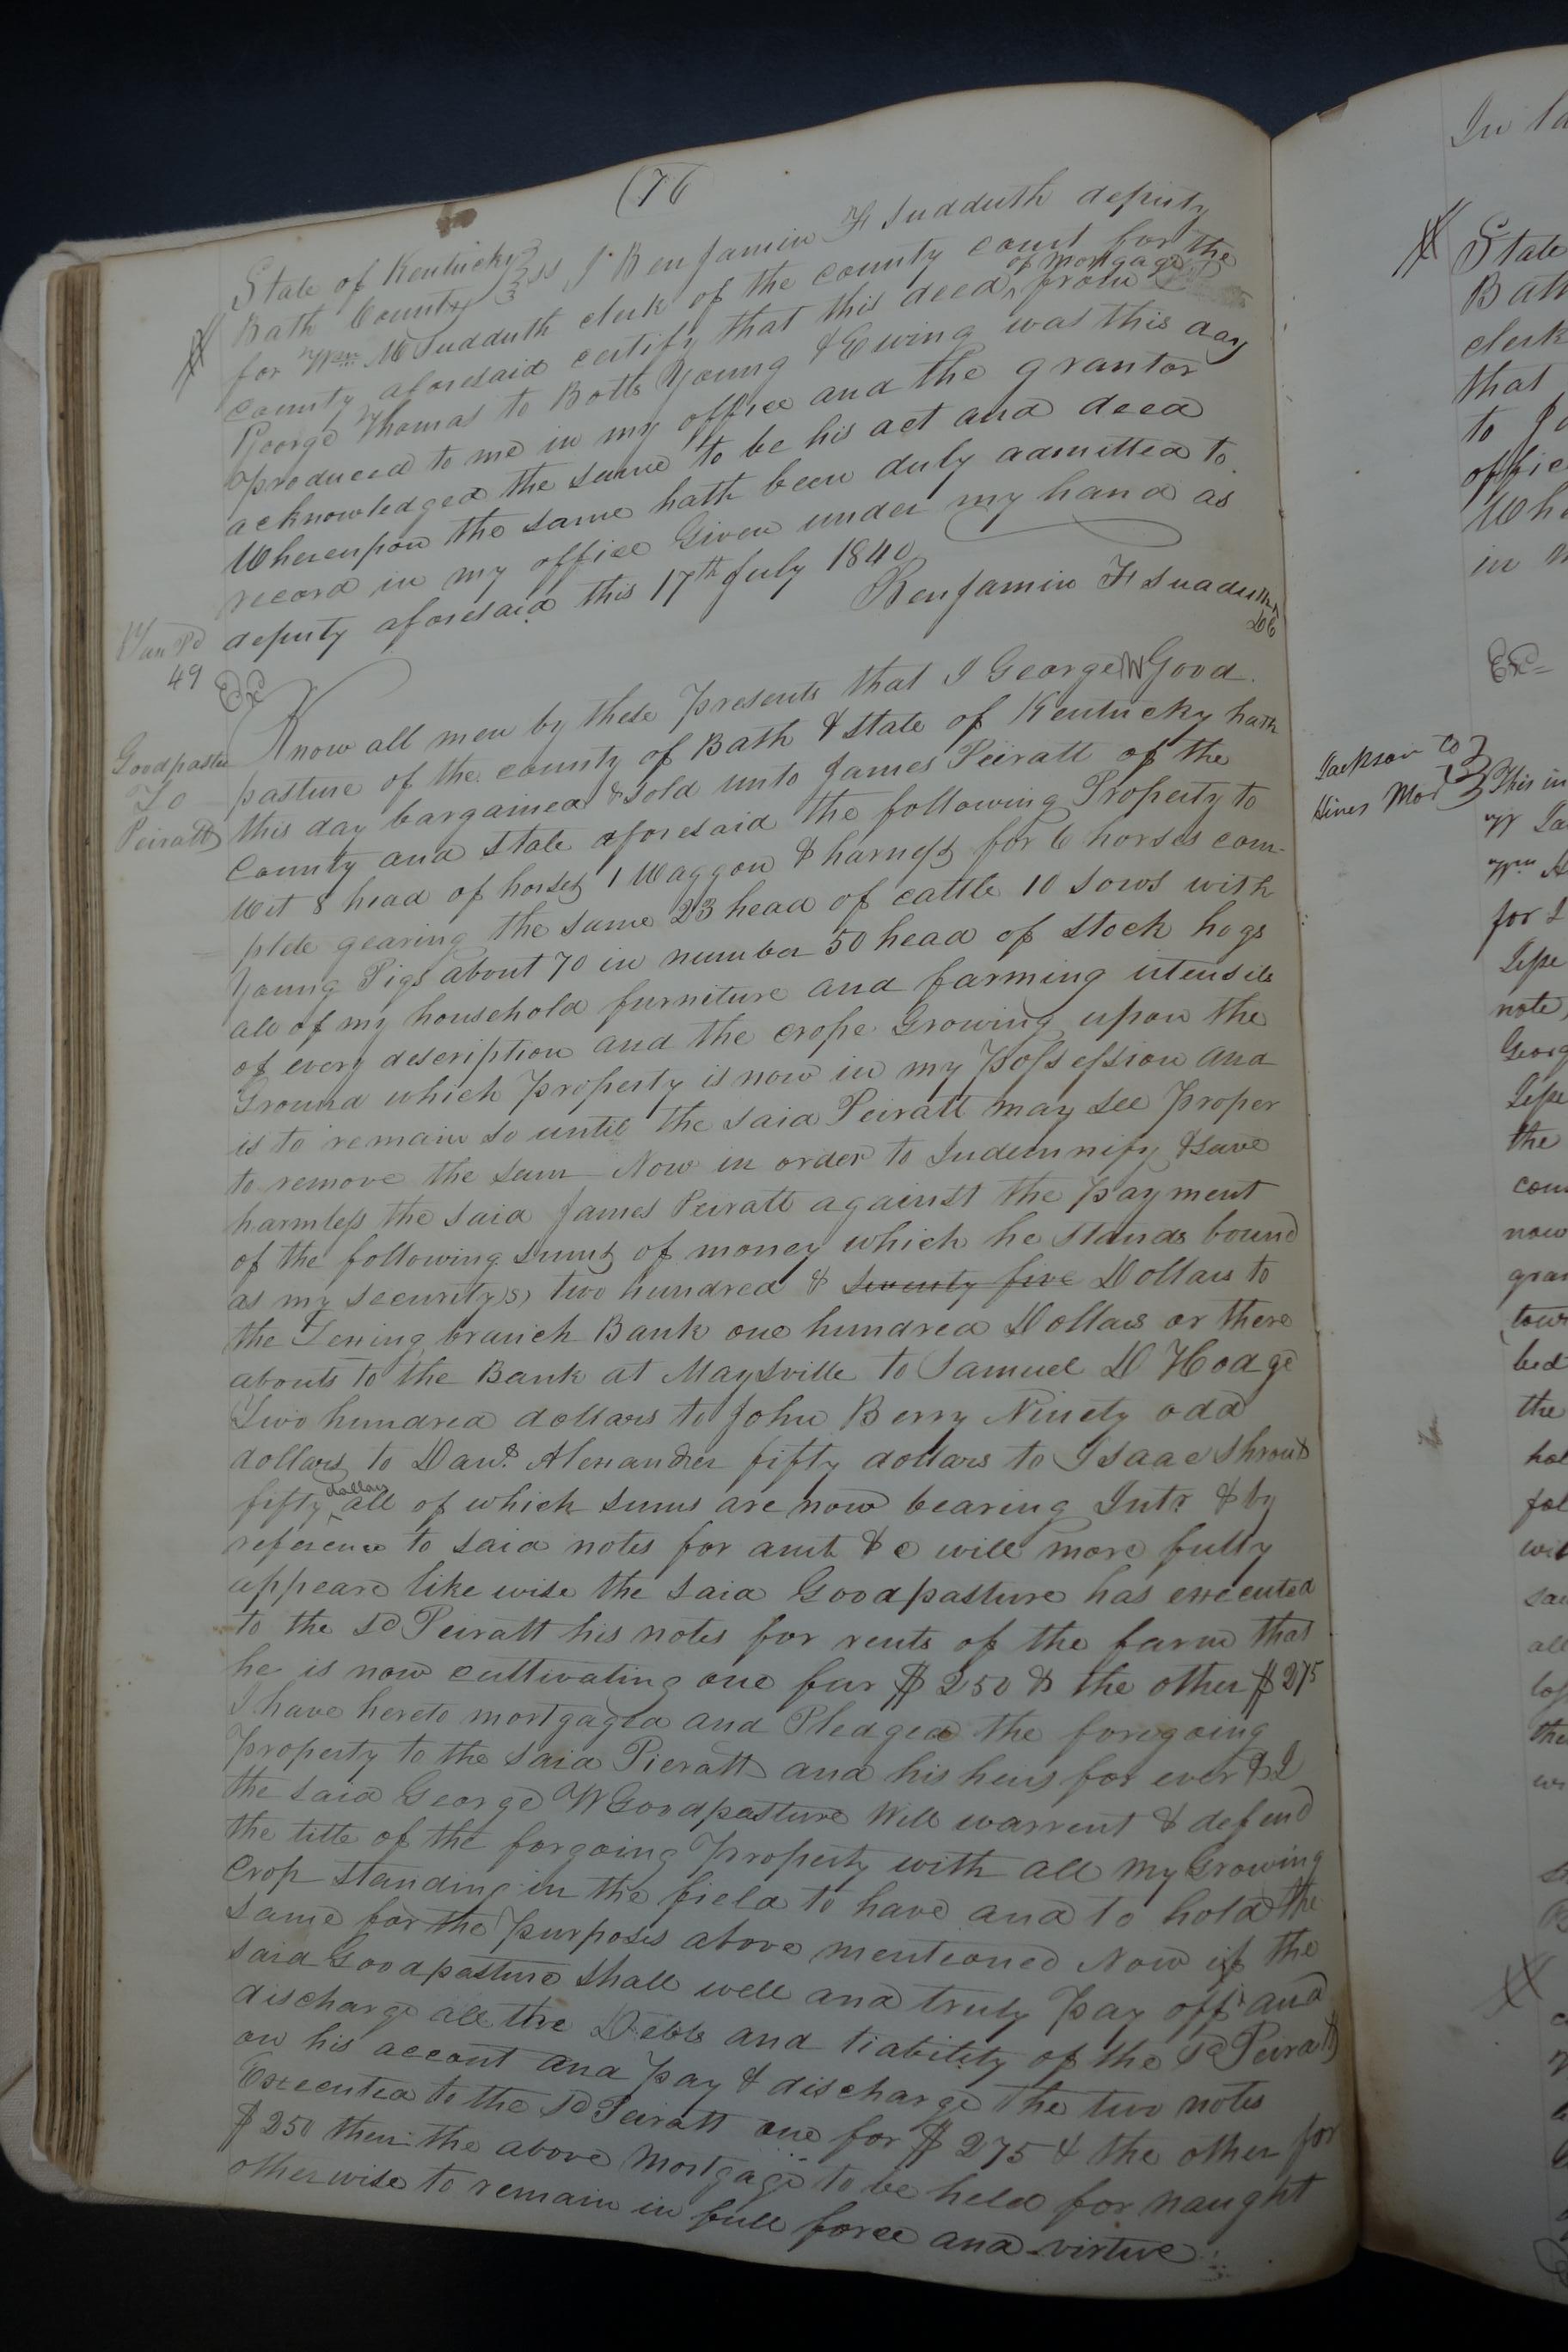 (76
State of Kentucky
Bath County } ss I Benjamin F Sudduth deputy
for Wm M Sudduth clerk of the county court for the
county aforesaid certify that this deed of mortgage from
George Thomas to Botts Young & Ewing was this day
produced to me in my office and the grantor
acknowledged the same to be his act and deed
Whereupon the same hath been duly admitted to
record in my office Given under my hand as
deputy aforesaid this 17th July 1840
Benjamin F Sudduth
DC
49
Ex
Goodpaster
To
Peiratt
Know all men by these presents that I George W Good
pasture of the county of Bath & state of Kentucky hath
this day bargained & sold unto James Peiratt of the
County and state aforesaid the following Property to
Wit 8 head of horses 1 Waggon & harness for 6 horses com-
plete gearing the same 23 head of cattle 10 sows with
young Pigs about 70 in number 50 head of stock hogs
all of my household furniture and farming utensils
of every description and the crope Growing upon the
Ground which property is now in my possession and
is to remain so until the said Peiratt may see proper
to remove the sam Now in order to Indemnify & save
harmless the said James Peiratt against the payment
of the following sums of money which he stands bound
as my security (s) two hundred & seventy five Dollars to
the branch Bank one hundred Dollars or there
abouts to the Bank at Maysville to Samuel D Hodge
Two hundred dollars to John Berry Ninety odd
dollars to Danl. Alexander fifty dollars to Isaac Shrout
fifty dollars all of which sums are now bearing Intr. & by
reference to said notes for amt &c will more fully
appeare like wise the said Goodpasture has executed
to the sd Peiratt his notes for rents of the farm that
he is now cultivating one fur $250 & the other $275
I have hereto mortgaged and Pledged the foregoing
property to the said Pieratt and his heirs for ever & I
the said George W Goodpasture Will warrent & defend
the title of the forgoing property with all my Growing
Crop standing in the field to have and to hold the
same for the purposes above mentioned Now if the
said Goodpasture shall well and truly pay off and
discharge all the Debts and liability of the sd Peiratt
on his accont and pay & discharge the two notes
Executed to the sd Peiratt one for $275 & the other for
$250 then the above Mortgage to be held for naught
otherwise to remain in full force and virtue
In
State
Bath
clerk
that
to
office
Whe
in
Ex
Jackson to
Hines Mor
This in
for
note
Georg
the
com
now
gran
town
bed
the